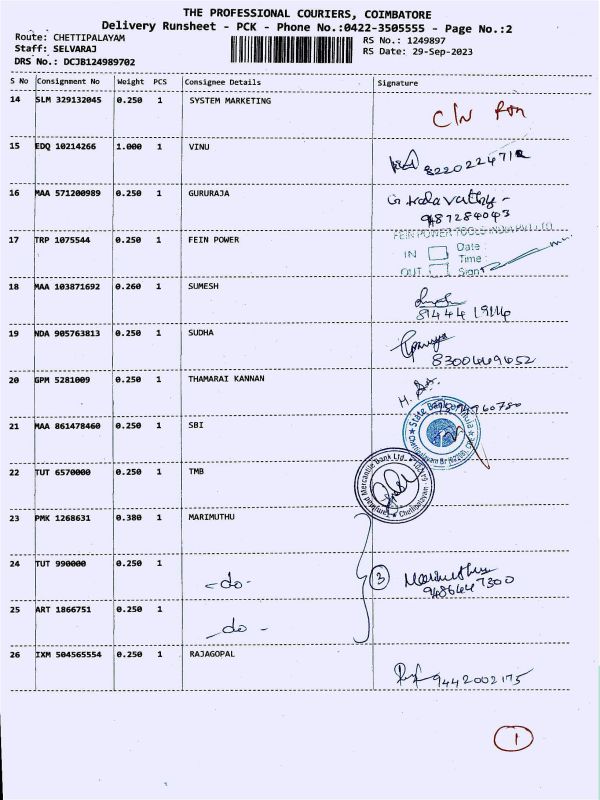 THE PROFESSIONAL COURIERS, COIMBATORE
Delivery Runsheet - PCK - Phone No.:0422-3505555 - Page No.:2
Route: CHETTIPALAYAM
RS No.: 1249897
Staff: SELVARAJ
RS Date: 29-Sep-2023
DRS No.: DCJB124989702
S No Consignment No Weight PCS Consignee Details Signature
14 SLM 329132045 0.250 1 SYSTEM MARKETING
C/N
15 EDQ 10214266 1.000 1 VINU
8220224712
16 MAA 571200989 0.250 1 GURURAJA
G Kalavathy -
9487284043
17 TRP 1075544 0.250 1 FEIN POWER
FEIN POWER TOOLS INDIA PVT LTD
IN Date :
Time :
OUT Sign :
18 MAA 103871692 0.260 1 SUMESH
19 NDA 905763813 0.250 1 SUDHA
8300449652
20 GPM 5281009 0.250 1 THAMARAI KANNAN
21 MAA 861478460 0.250 1 SBI
State Bank of India
22 TUT 6570000 0.250 1 TMB
Tamilnad Mercantile Bank Ltd.
Chettipalayam
23 PMK 1268631 0.380 1 MARIMUTHU
24 TUT 990000 0.250 1 - do - 3 Marimuthu
9486447300
25 ART 1866751 0.250 1 - do -
26 IXM 504565554 0.250 1 RAJAGOPAL
9442002175
1